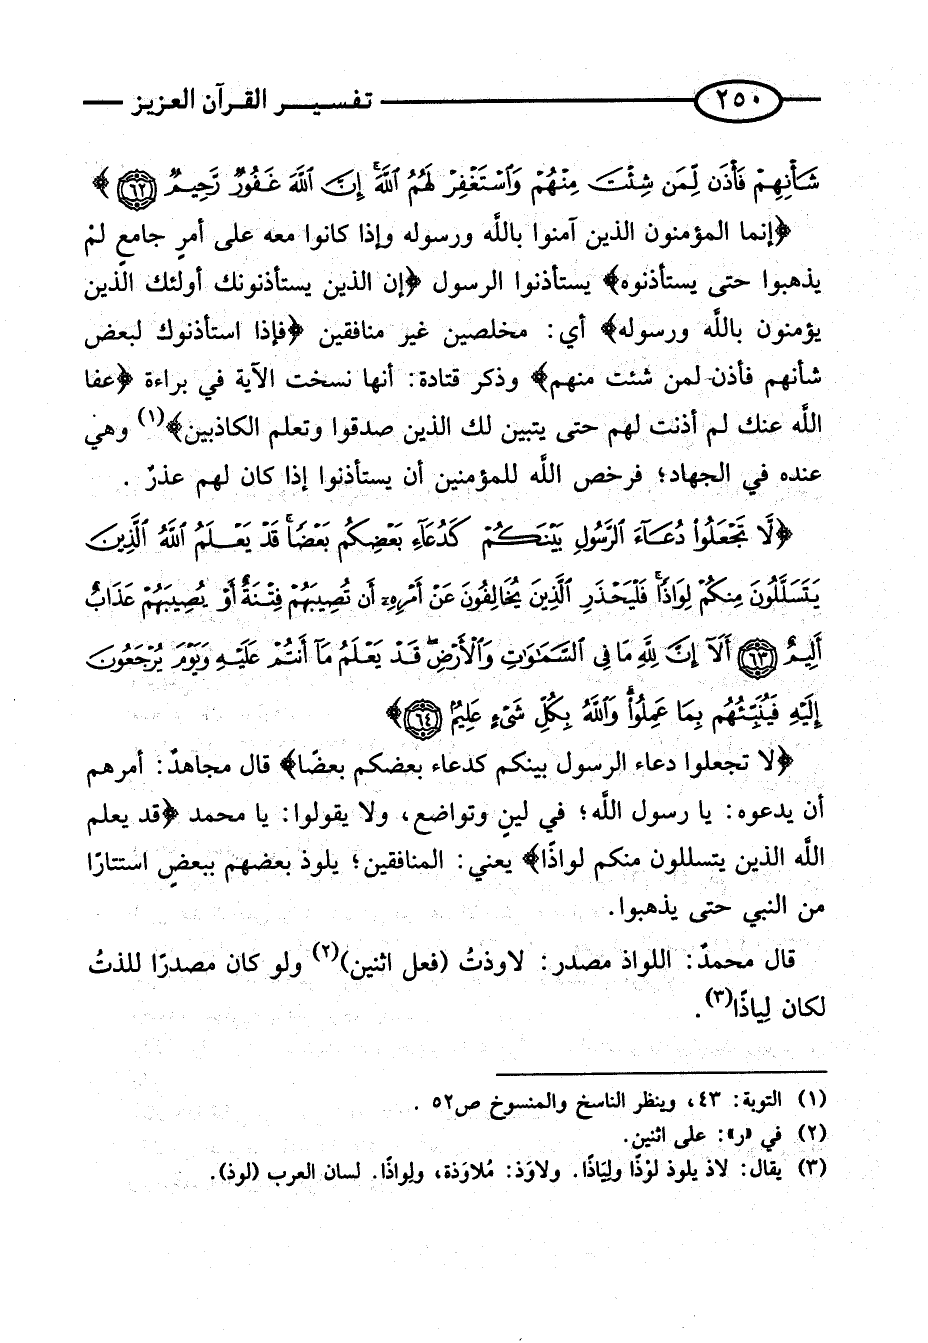 ٢٥٠ تفسير القرآن العزيز
شَأْنِهِمْ فَأْذَن لِّمَن شِئْتَ مِنْهُمْ وَٱسْتَغْفِرْ لَهُمُ ٱللَّهَ ۚ إِنَّ ٱللَّهَ غَفُورٌ رَّحِيمٌ ٦٢ ﴾
﴿إنما المؤمنون الذين آمنوا باللَّه ورسوله وإذا كانوا معه على أمرٍ جامعٍ لمْ
يذهبوا حتى يستأذنوه﴾ يستأذنوا الرسول ﴿إن الذين يستأذنونك أولئك الذين
يؤمنون باللَّه ورسوله﴾ أي: مخلصين غير منافقين ﴿فإذا استأذنوك لبعض
شأنهم فأذن لمن شئت منهم﴾ وذكر قتادة: أنها نسخت الآية في براءة ﴿عفا
اللَّه عنك لم أذنت لهم حتى يتبين لك الذين صدقوا وتعلم الكاذبين﴾(١) وهي
عنده في الجهاد؛ فرخص اللَّه للمؤمنين أن يستأذنوا إذا كان لهم عذرٌ .
﴿لَّا تَجْعَلُوا۟ دُعَآءَ ٱلرَّسُولِ بَيْنَكُمْ كَدُعَآءِ بَعْضِكُم بَعْضًا ۚ قَدْ يَعْلَمُ ٱللَّهُ ٱلَّذِينَ
يَتَسَلَّلُونَ مِنكُمْ لِوَاذًا ۚ فَلْيَحْذَرِ ٱلَّذِينَ يُخَالِفُونَ عَنْ أَمْرِهِۦٓ أَن تُصِيبَهُمْ فِتْنَةٌ أَوْ يُصِيبَهُمْ عَذَابٌ
أَلِيمٌ ٦٣ أَلَآ إِنَّ لِلَّهِ مَا فِى ٱلسَّمَٰوَٰتِ وَٱلْأَرْضِ ۖ قَدْ يَعْلَمُ مَآ أَنتُمْ عَلَيْهِ وَيَوْمَ يُرْجَعُونَ
إِلَيْهِ فَيُنَبِّئُهُم بِمَا عَمِلُوا۟ ۗ وَٱللَّهُ بِكُلِّ شَىْءٍ عَلِيمٌۢ ٦٤ ﴾
﴿لا تجعلوا دعاء الرسول بينكم كدعاء بعضكم بعضًا﴾ قال مجاهدٌ: أمرهم
أن يدعوه: يا رسول اللَّه؛ في لينٍ وتواضع، ولا يقولوا: يا محمد ﴿قد يعلم
اللَّه الذين يتسللون منكم لواذًا﴾ يعني: المنافقين؛ يلوذ بعضهم ببعضٍ استتارًا
من النبي حتى يذهبوا.
قال محمدٌ: اللواذ مصدر: لاوذتُ (فعل اثنين)(٢) ولو كان مصدرًا للذتُ
لكان لِياذًا(٣).
(١) التوبة: ٤٣، وينظر الناسخ والمنسوخ ص٥٢ .
(٢) في «ر»: على اثنين.
(٣) يقال: لاذ يلوذ لوْذًا ولِيَاذًا. ولاوَذ: مُلاوَذة، ولِواذًا. لسان العرب (لوذ).